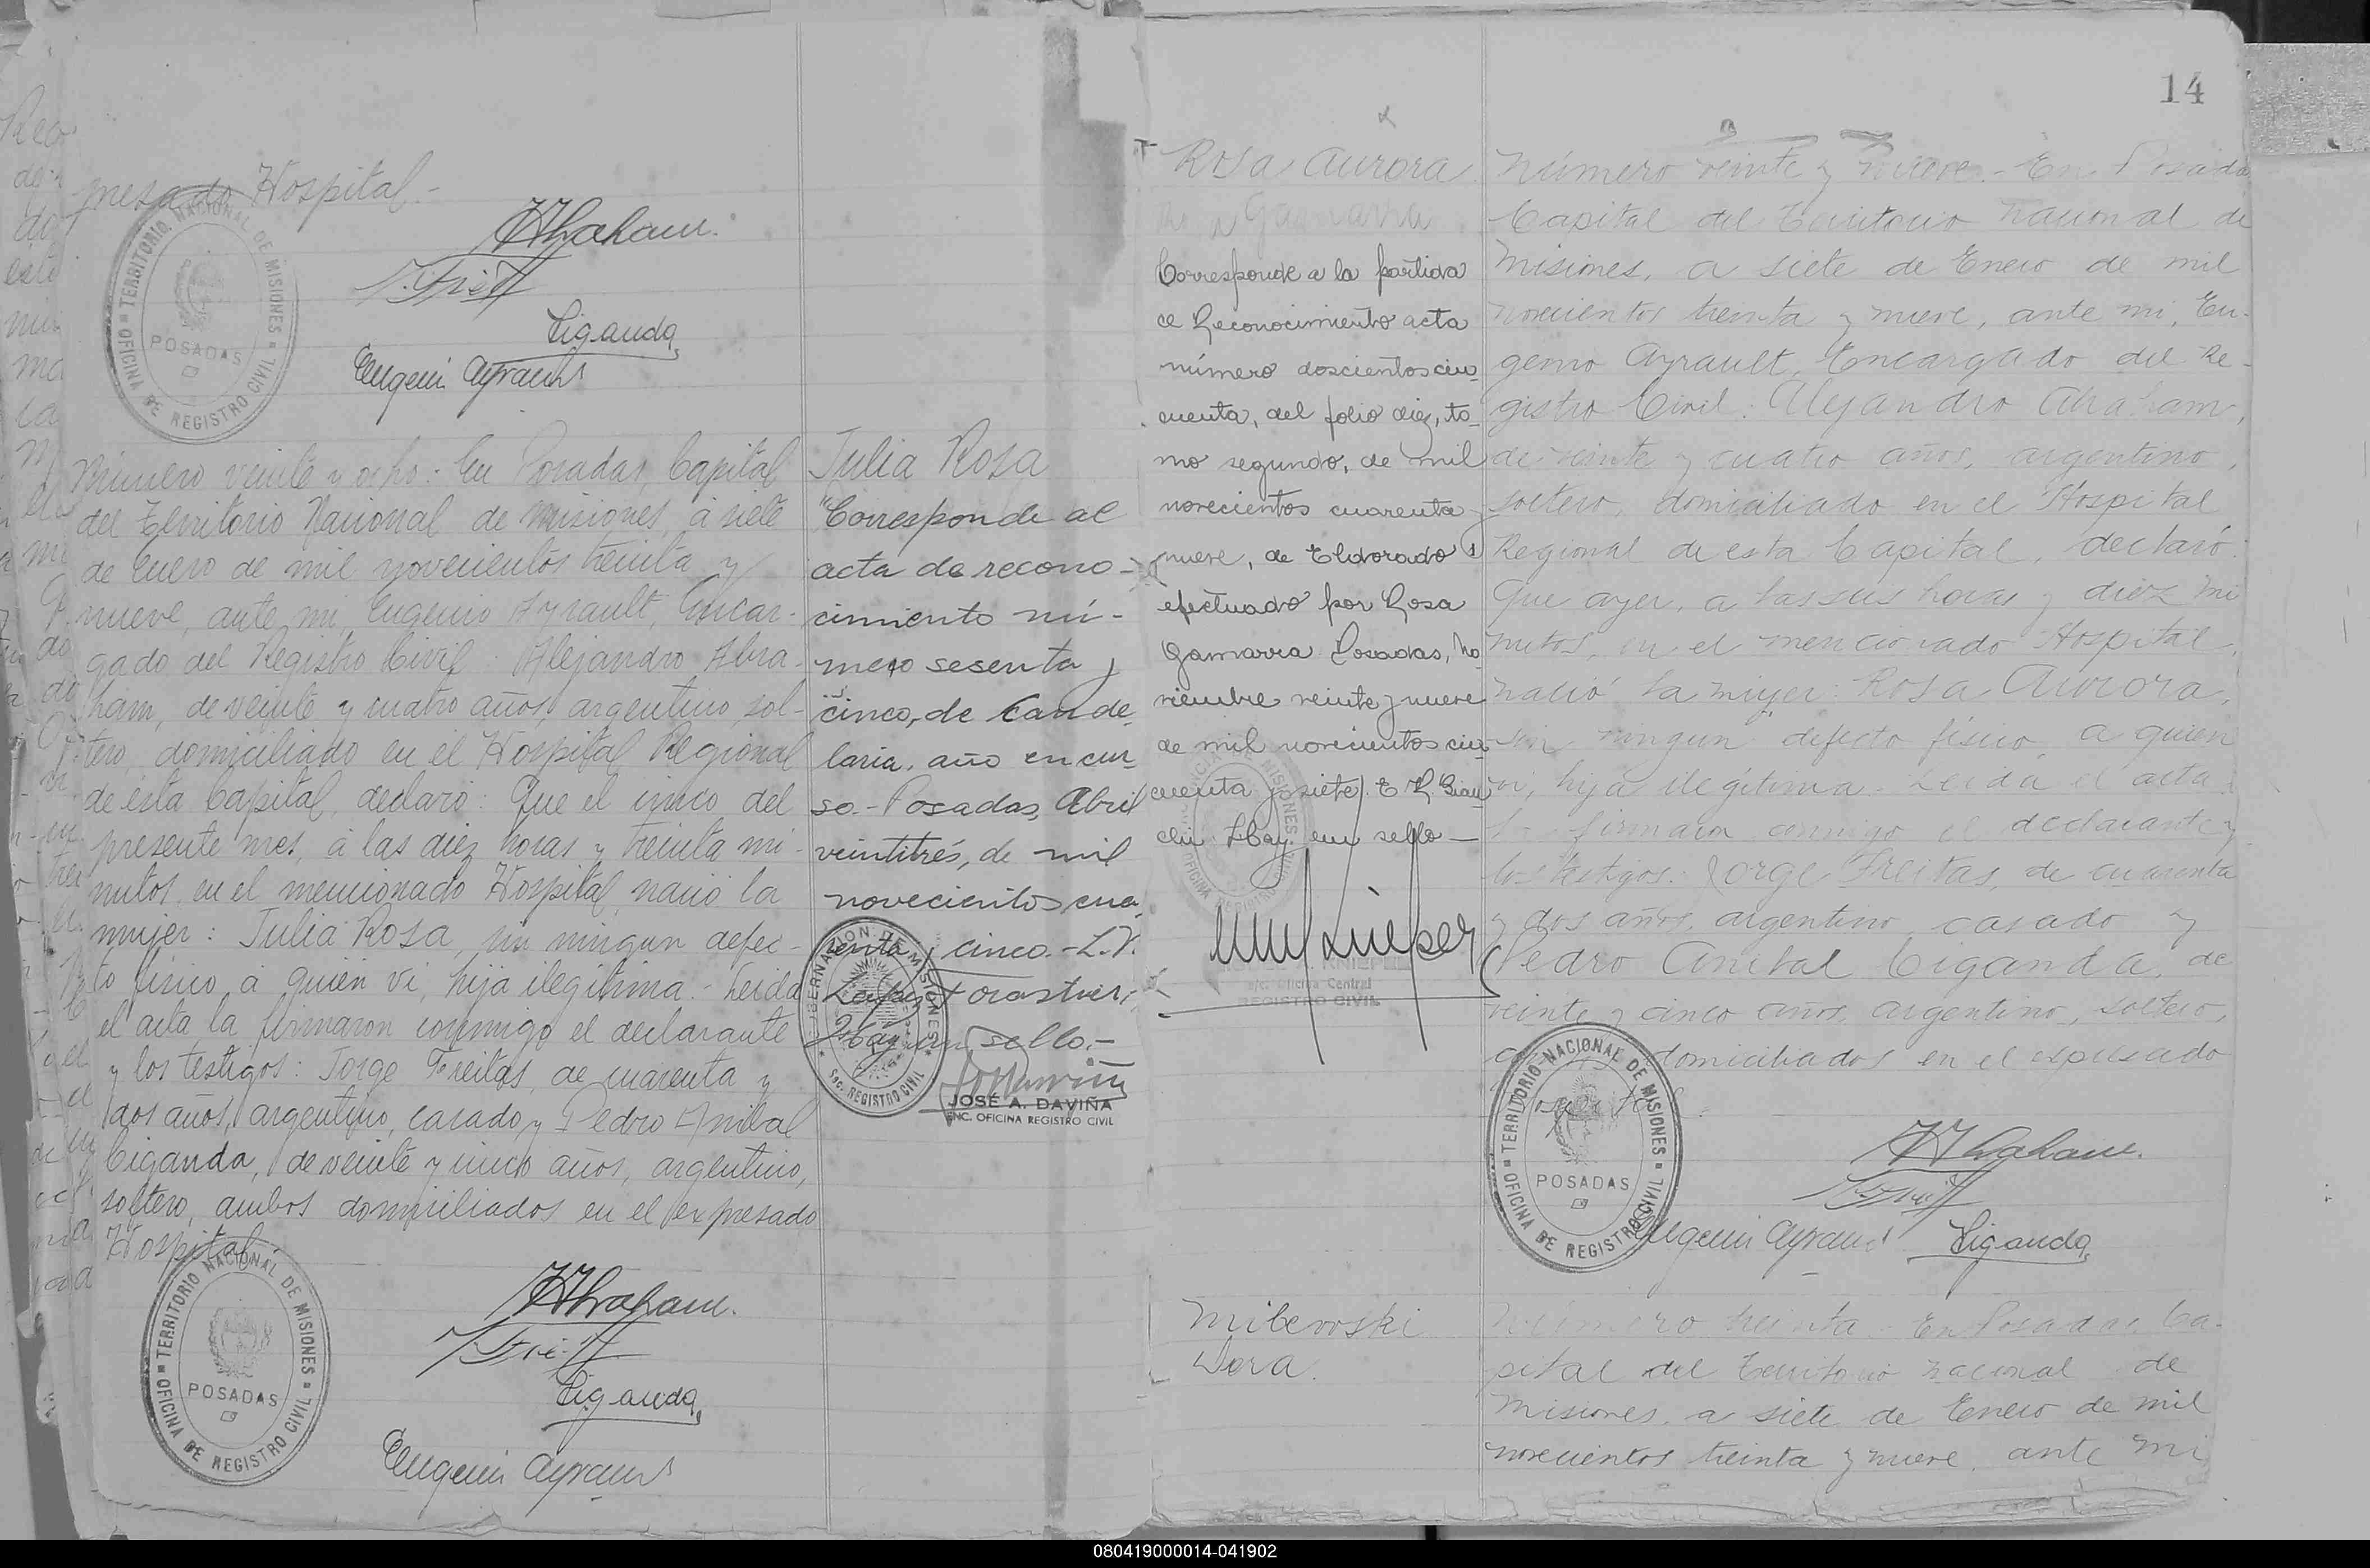 presado Hospital.-
TERRITORIO NACIONAL DE MISIONES
OFICINA DE REGISTRO CIVIL
POSADAS
AAbraham.
J. Freitas
Ciganda
Eugenio Ayrault
Número veinte y ocho: En Posadas, Capital
del Territorio Nacional de Misiones, á siete
de Enero de mil novecientos treinta y
nueve, ante mi, Eugenio Ayrault, Encar-
gado del Registro Civil: Alejandro Abra-
ham, de veinte y cuatro años, argentino, sol-
tero, domiciliado en el Hospital Regional
de esta Capital, declaró: Que el cinco del
presente mes, á las diez horas y treinta mi-
nutos, en el mencionado Hospital, nació la
mujer: Julia Rosa, sin ningun defec-
to físico, á quien vi, hija ilegítima.- Leída
el acta, la firmaron conmigo el declarante
y los testigos: Jorge Freitas, de cuarenta y
dos años, argentino, casado y Pedro Anibal
Ciganda, de veinte y cinco años, argentino,
soltero, ambos domiciliados en el expresado
Hospital.
TERRITORIO NACIONAL DE MISIONES
OFICINA DE REGISTRO CIVIL
POSADAS
AAbraham.
J. Freitas
Ciganda
Eugenio Ayrault
Julia Rosa
"Corresponde al
acta de recono-
cimiento nú-
mero sesenta y
cinco, de Cande-
laria, año en cur-
so.- Posadas, Abril
veintitrés, de mil
novecientos cua-
renta y cinco.- L.V.
Hay un sello.-
GOBERNACION DE MISIONES
Sec. REGISTRO CIVIL
JOSÉ A. DAVIÑA
ENC. OFICINA REGISTRO CIVIL
14
Rosa Aurora
Gamarra
Corresponde a la partida
de Reconocimiento acta
número doscientos cin-
cuenta, del folio diez, to-
mo segundo, de mil
novecientos cuarenta y
nueve, de Eldorado
efectuado por Rosa
Gamarra Posadas, No-
viembre veinte y nueve
de mil novecientos cin-
cuenta y siete. E R.
Hay un sello -
KNIEPER
Oficina Central
REGISTRO CIVIL
Número veinte y nueve.- En Posadas
Capital del Territorio Nacional de
Misiones, a siete de Enero de mil
novecientos treinta y nueve, ante mi, Eu-
genio Ayrault, Encargado del Re-
gistro Civil: Alejandro Abraham,
de veinte y cuatro años, argentino,
soltero, domiciliado en el Hospital
Regional de esta Capital, declaró:
Que ayer, a las seis horas y diez mi
nutos, en el mencionado Hospital,
nació la mujer: Rosa Aurora,
sin ningun defecto físico, a quien
vi, hija ilegítima.- Leida el acta
la firmaron conmigo el declarante y
los testigos: Jorge Freitas, de cuarenta
y dos años, argentino, casado y
Pedro Anibal Ciganda, de
veinte y cinco años, argentino, soltero,
domiciliados en el expresado
TERRITORIO NACIONAL DE MISIONES
OFICINA DE REGISTRO CIVIL
POSADAS
AAbraham.
J. Freitas
Eugenio Ayrault
Ciganda
Milevoski
Dora.
Número treinta.- En Posadas, Ca-
pital del Territorio Nacional de
Misiones, a siete de Enero de mil
novecientos treinta y nueve, ante mi
080419000014-041902